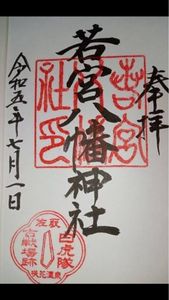 奉拝
若宮八幡神社
若宮
社印
令和五年七月一日
白虎隊
古戦場跡
咲花温泉